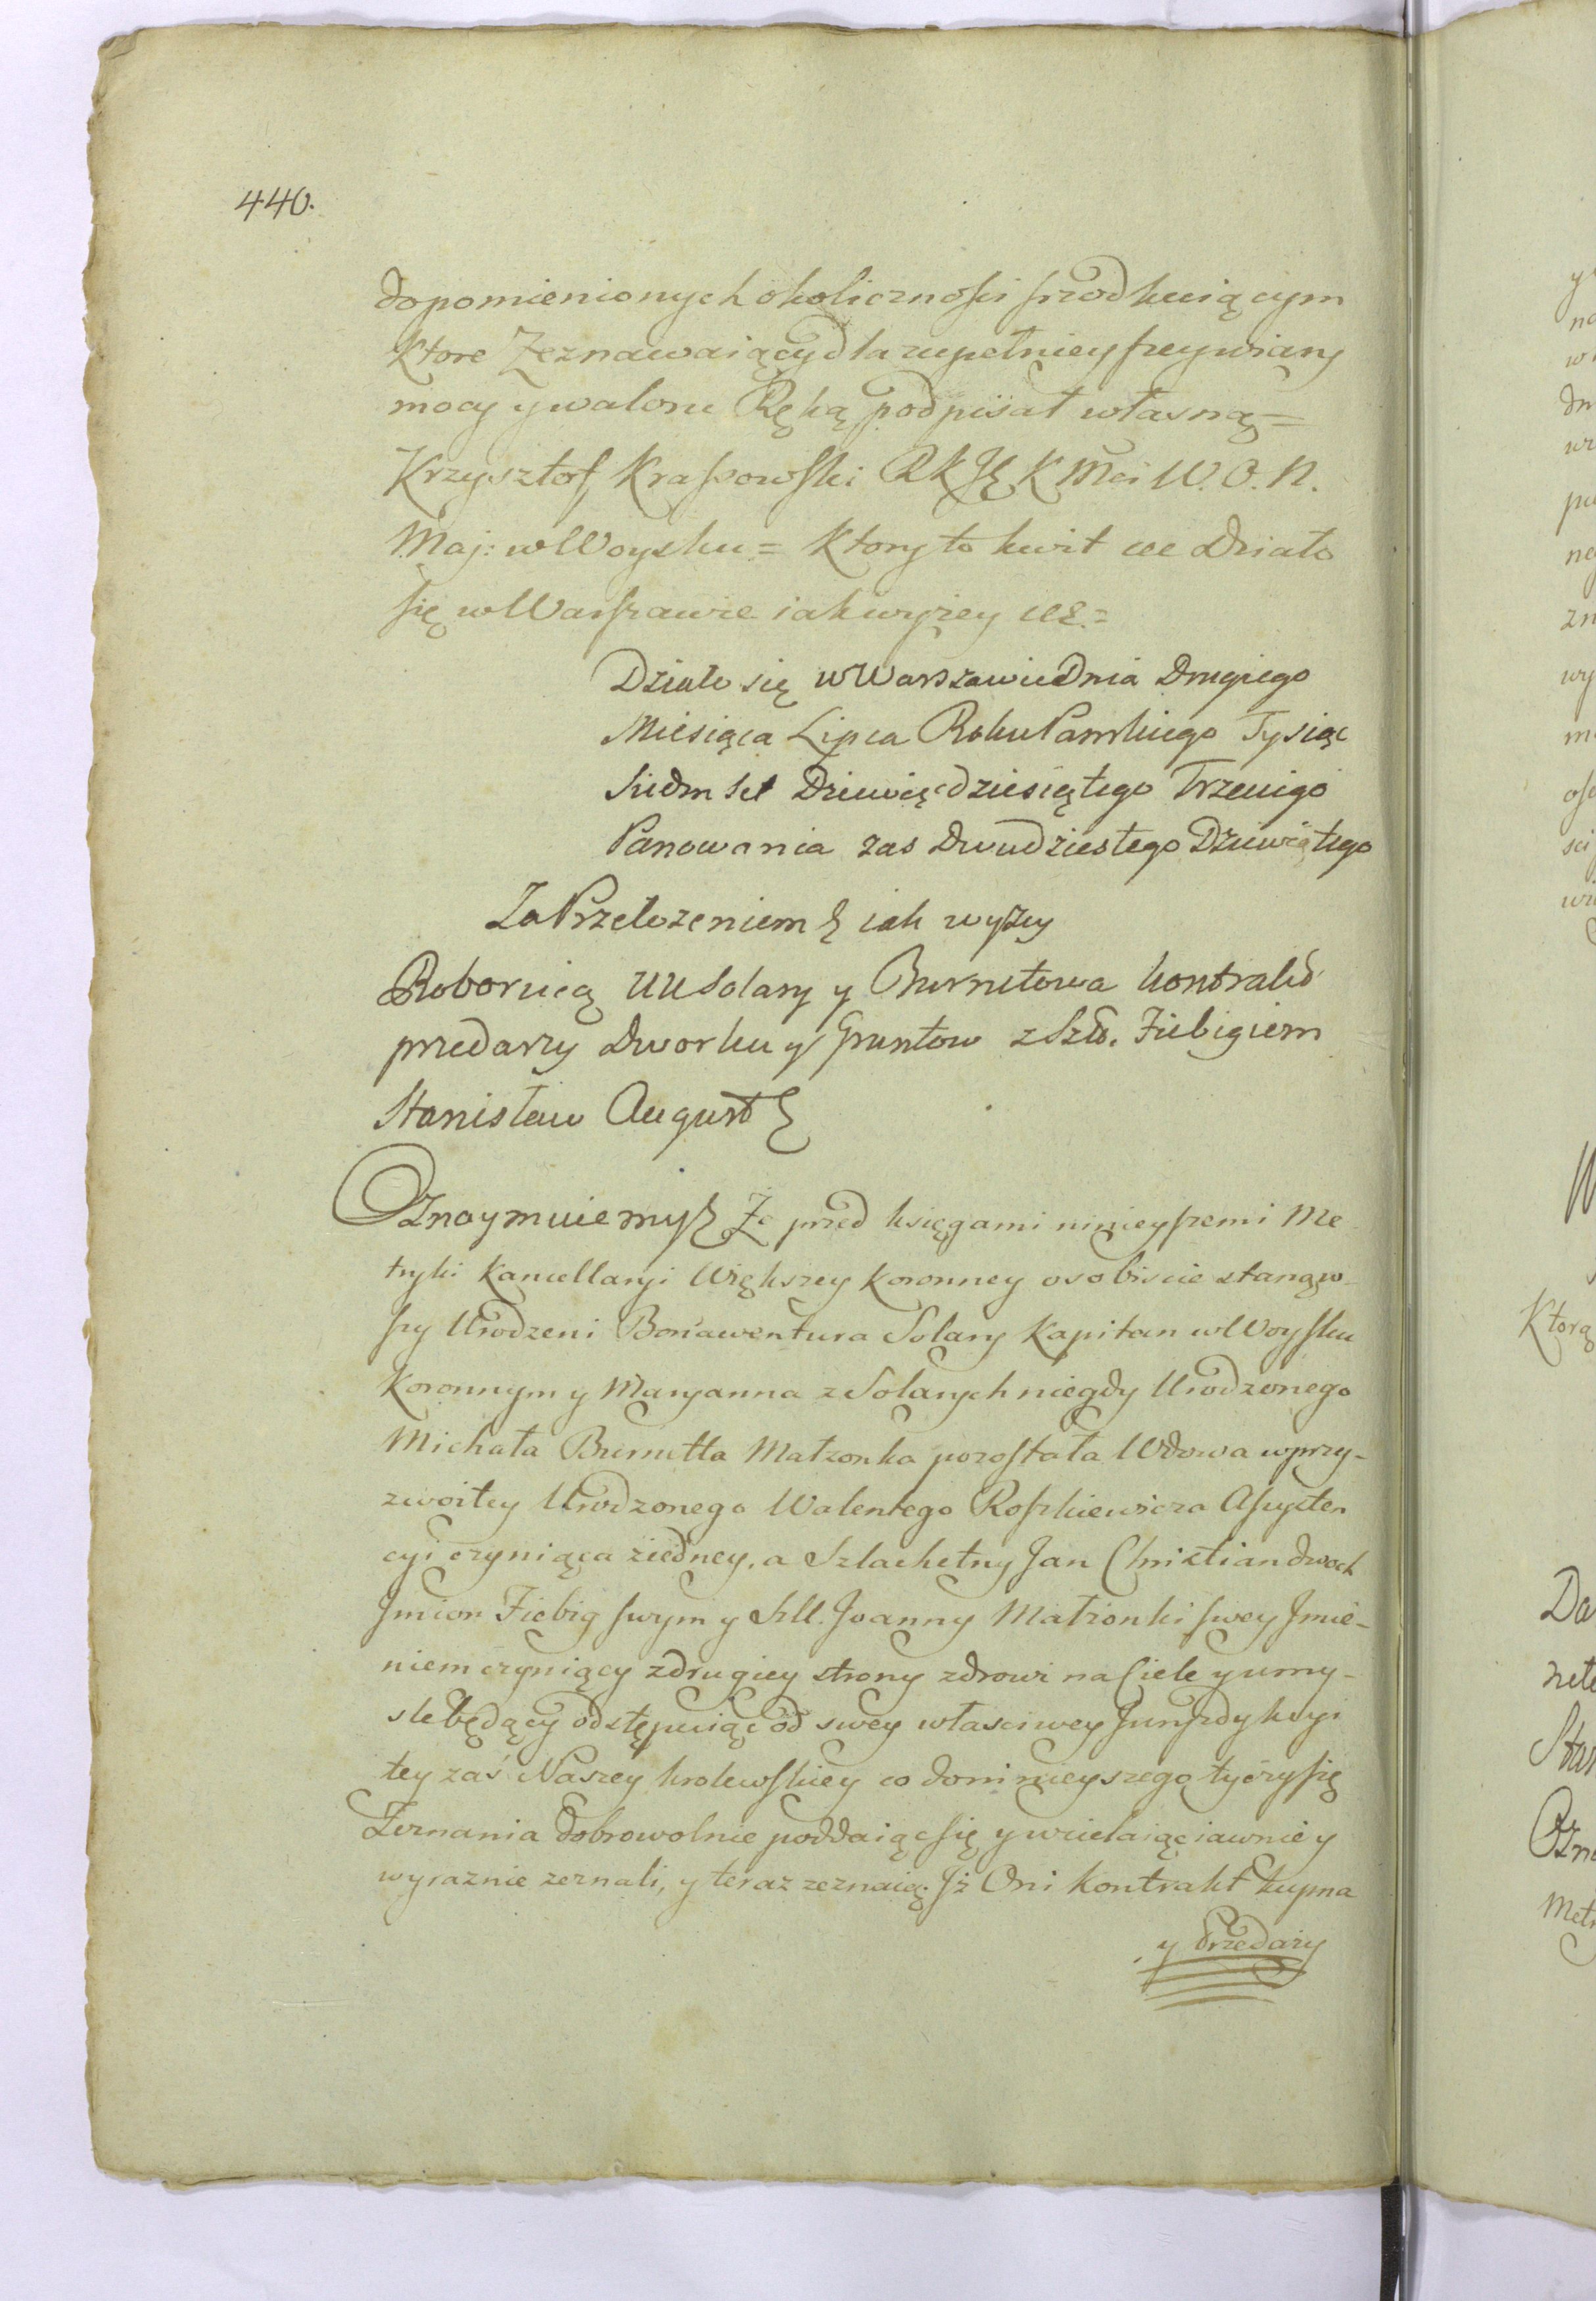 440.
dopomienionych okolicznosci srzodkuiącym
ktore Zeznawaiący dla zupełnieyszey wiary
mocy y waloru Ręką podpisał własną =
Krzysztof Krassowski RKJĘKMci W.O.N.
Maj: w Woysku = Ktory to kwit etc Działo
się w Warszawie iak wyżey etc. =
Działo się w Warszawie Dnia Drugiego
Miesiąca Lipca Roku Panskiego Tysiąc
Siedmset Dziewięcdziesiątego Trzeciego
Panowania zas Dwudziestego Dziewiątego
Za Przełozeniem iak wyzey
Roboruią UU Solary y Burnetowa kontrakt
przedarzy Dworku y Gruntow z Szl. Fiebigiem
Stanisław August
Oznaymuiemy Ze przed księgami ninieyszemi Me
tryki Kancellaryi Większey Koronney osobiscie stanąw-
szy Urodzeni Bonawentura Solary Kapitan w Woysku
Koronnym y Maryanna z Solarych niegdy Urodzonego
Michała Burnetta Małzonka pozostała Wdowa w przy-
zwoitey Urodzonego Walentego Roszkiewicza Assysten
cyi czyniąca ziedney, a Szlachetny Jan Christian dwoch
Jmion Fiebig swym y Szll. Joanny Małzonki swey Jmie-
niem czyniący z drugiey strony zdrowi na Ciele y umy-
sle będący odstępuiąc od swey własciwey Juryzdykcyi
tey zaś Naszey krolewskiey co do ninieyszego tyczy się
Zeznania dobrowolnie poddaiąc się y wcielaiąc iawnie y
wyraznie zeznali, y teraz zeznaią: Jż Oni kontrakt kupna
y Przedaży